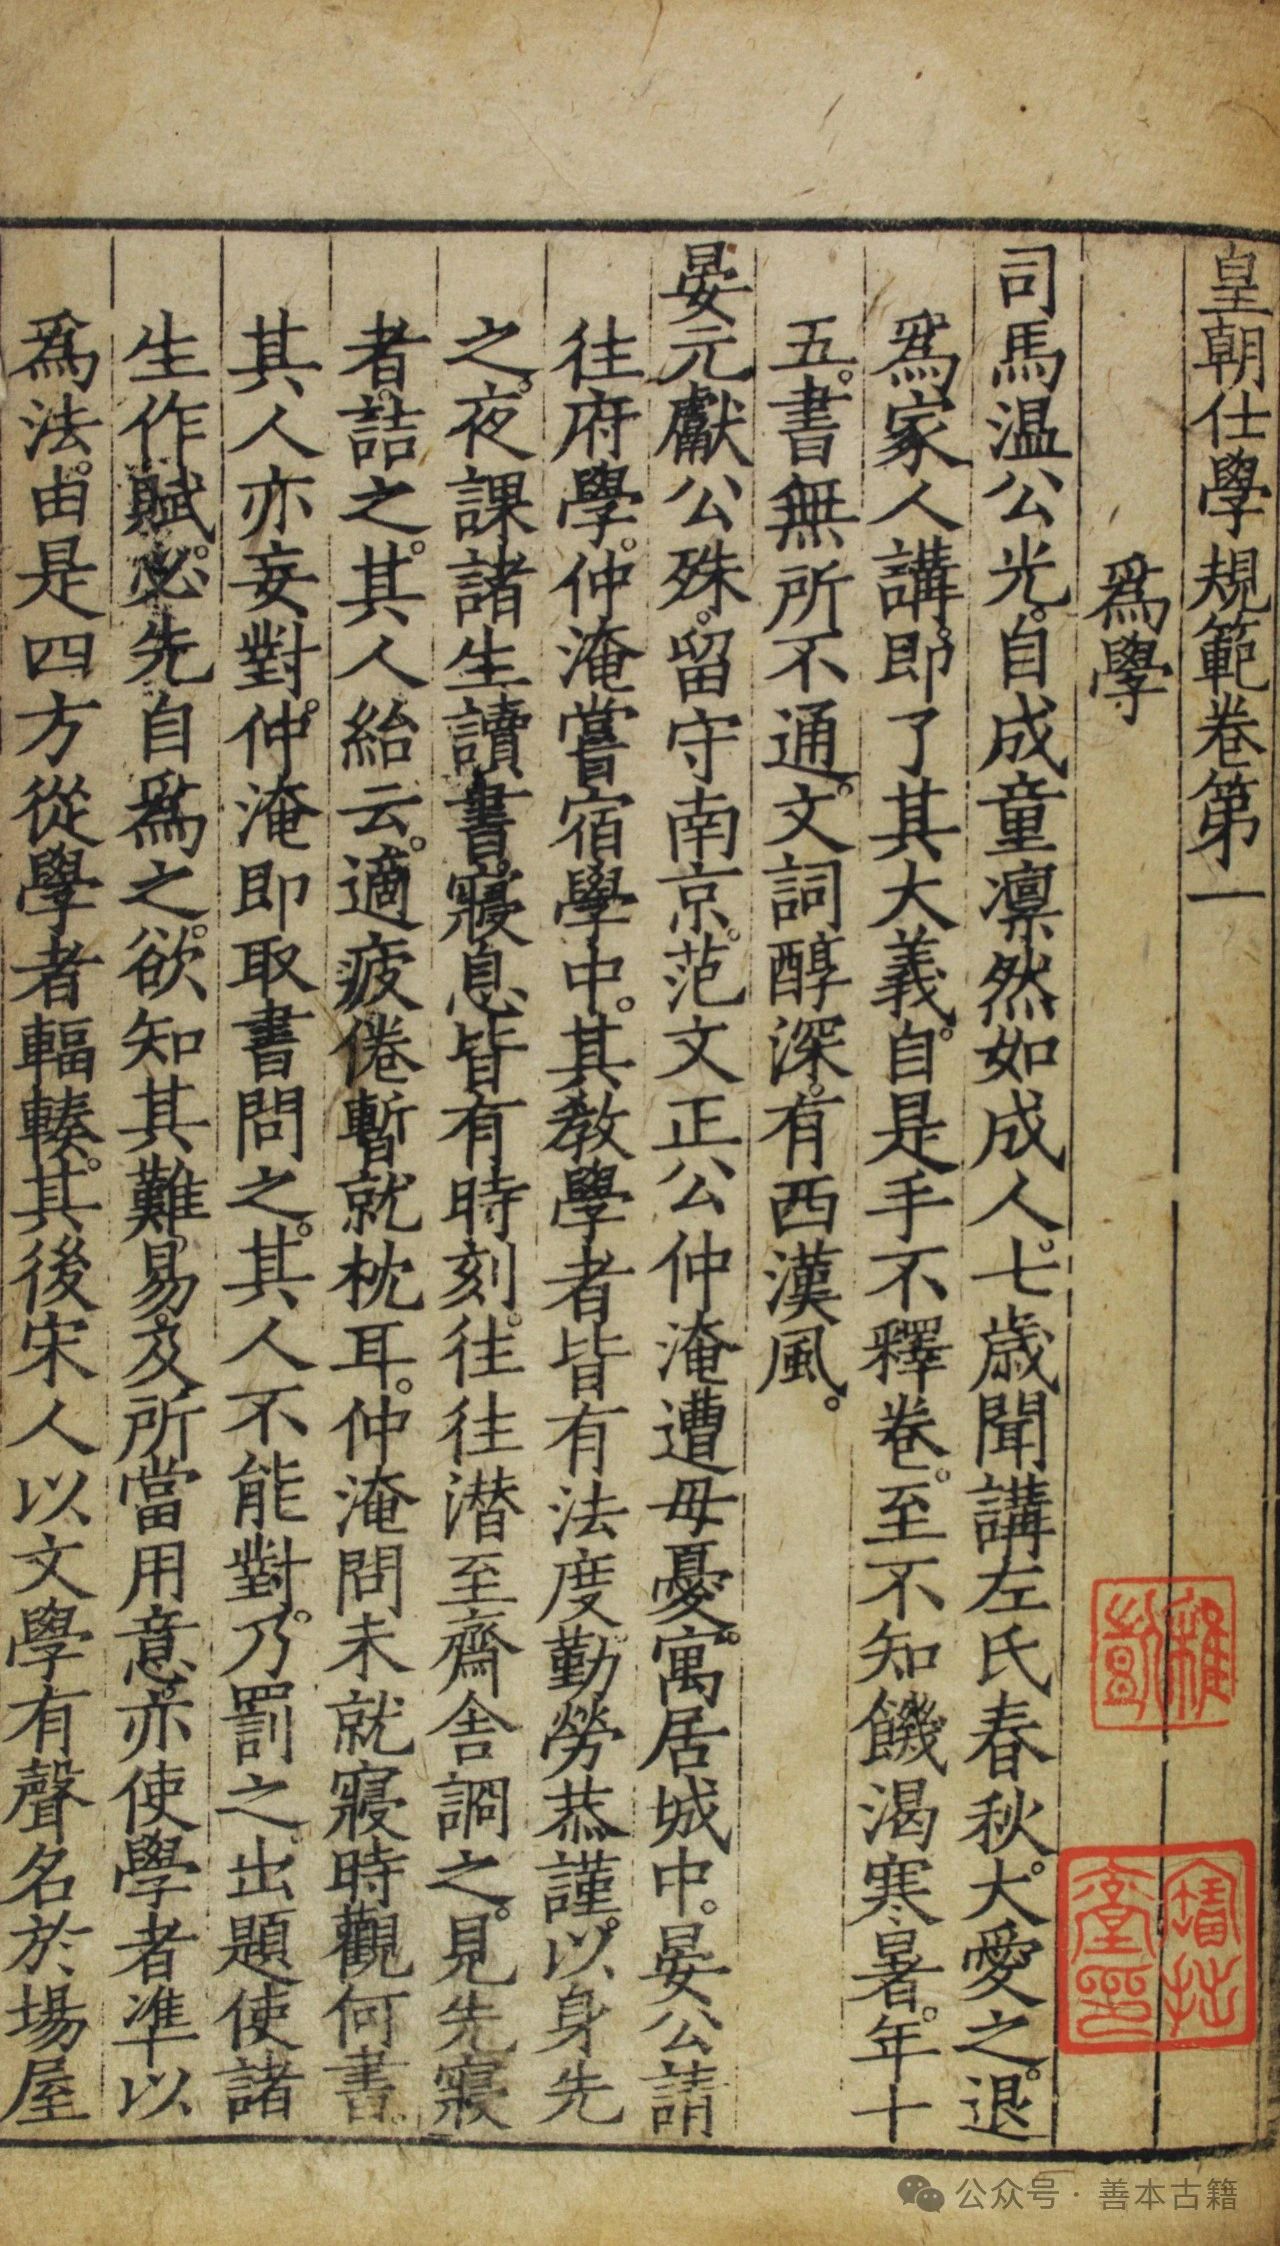 皇朝仕學規範卷第一
爲學
司馬温公光。自成童凛然如成人。七歲聞講左氏春秋。大愛之。退
爲家人講。即了其大義。自是手不釋卷。至不知饑渴寒暑。年十
五。書無所不通。文詞醇深。有西漢風。
晏元獻公殊。留守南京。范文正公仲淹遭母憂。寓居城中。晏公請
往府學。仲淹嘗宿學中。其教學者皆有法度。勤勞恭謹。以身先
之。夜課諸生讀書。寢息皆有時刻。往往潜至齋舍詗之。見先寢
者。詰之。其人紿云。適疲倦暫就枕耳。仲淹問未就寢時觀何書。
其人亦妄對。仲淹即取書問之。其人不能對。乃罰之。出題使諸
生作賦。必先自爲之。欲知其難易。及所當用意。亦使學者準以
爲法。由是四方從學者輻輳。其後宋人以文學有聲名於場屋
公众号·善本古籍